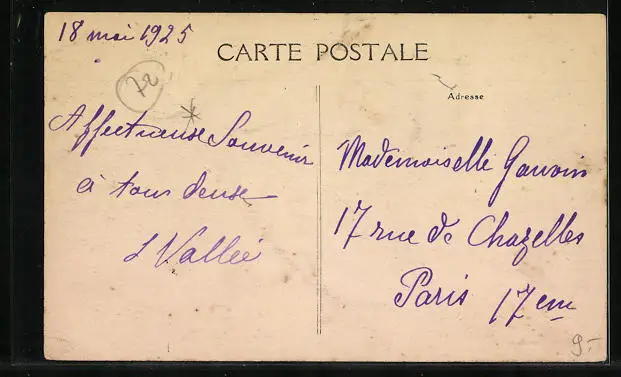 18 mai 1925
CARTE POSTALE
72
Adresse
Affectueuse Souvenir
à tous deux
L Vallée
Mademoiselle Gauvin
17 rue de Chazelles
Paris 17em
9-